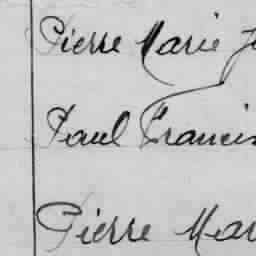 Pierre Marie J
Paul Francis
Pierre Mar